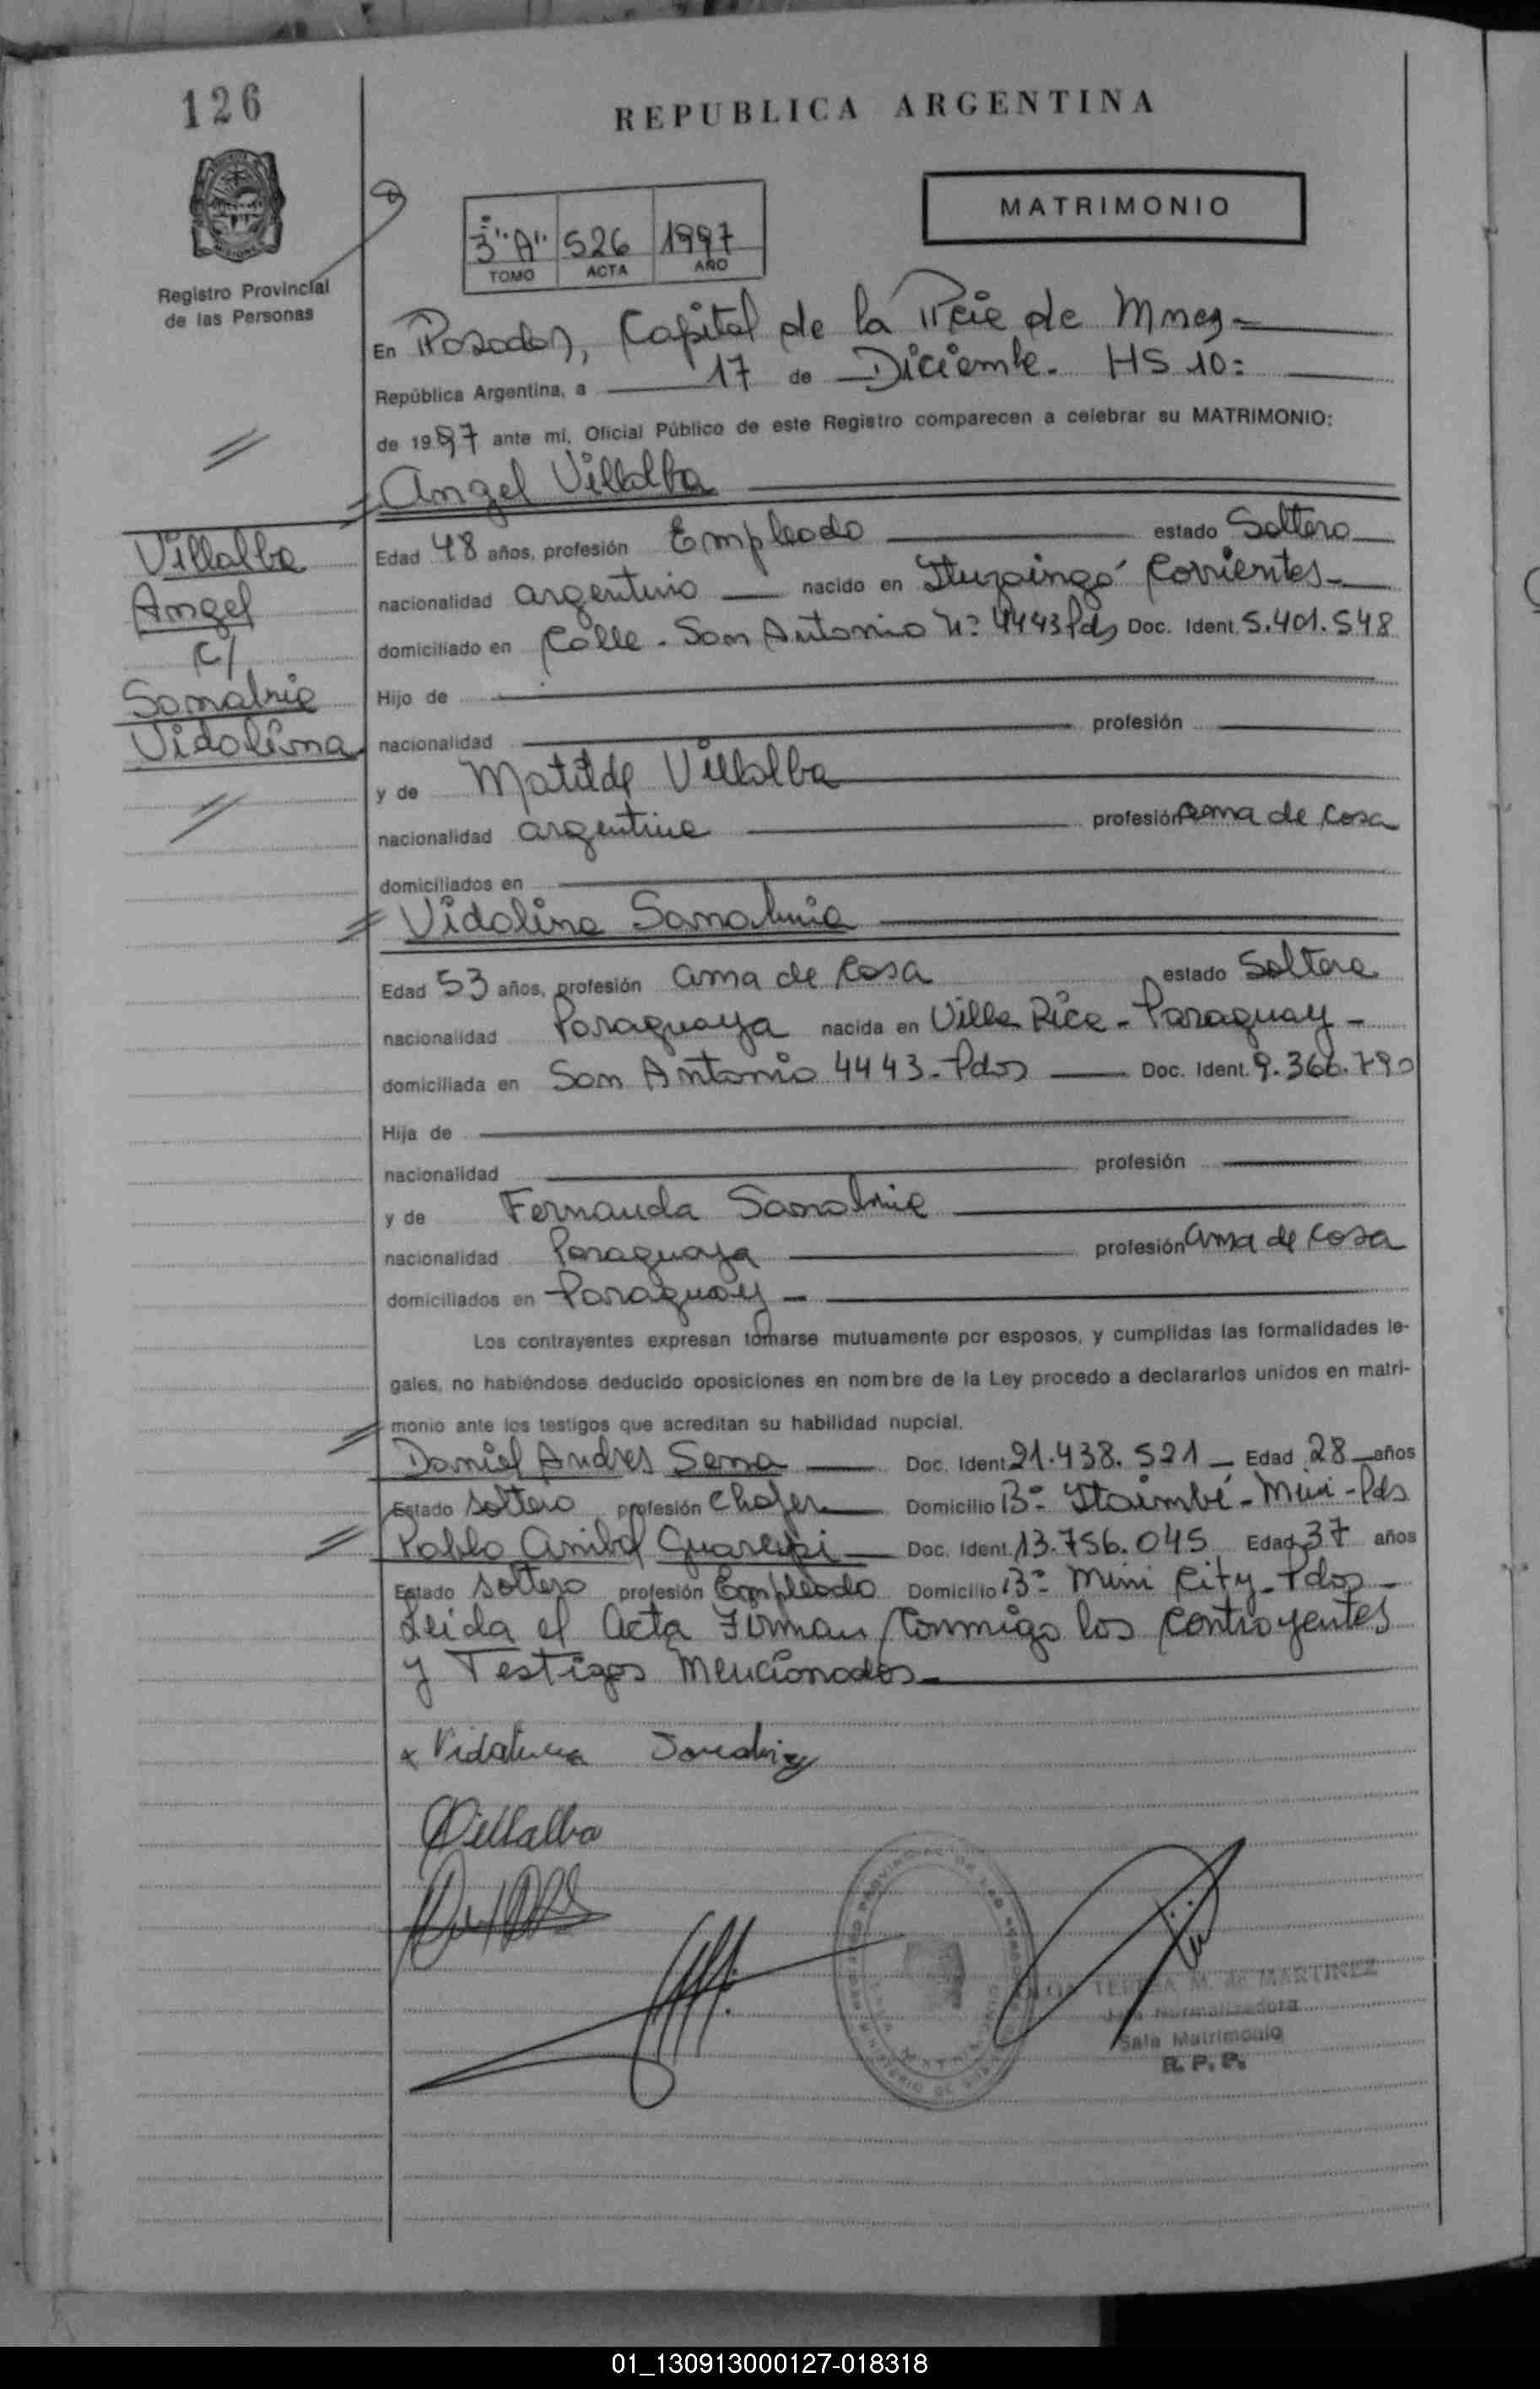 126
REPUBLICA ARGENTINA
MATRIMONIO
3º "A" 526 1997
TOMO ACTA AÑO
Registro Provincial
de las Personas
En Posadas, Capital de la Pcie de Mnes
República Argentina, a 17 de Diciembre. HS 10:
de 1997 ante mí, Oficial Público de este Registro comparecen a celebrar su MATRIMONIO:
Angel Villalba
Villalba
Angel
C/
Sanabria
Vidalina
Edad 48 años, profesión Empleado estado Soltero
nacionalidad argentino nacido en Ituzaingó Corrientes
domiciliado en Calle - San Antonio Nº 4443 Pds Doc. Ident. 5.401.548
Hijo de
nacionalidad profesión
y de Matilde Villalba
nacionalidad argentina profesión ama de casa
domiciliados en
Vidalina Sanabria
Edad 53 años, profesión ama de casa estado Soltera
nacionalidad Paraguaya nacida en Villa Rica - Paraguay -
domiciliada en San Antonio 4443 - Pdas Doc. Ident. 9.366.790
Hija de
nacionalidad profesión
y de Fernanda Sanabria
nacionalidad Paraguaya profesión ama de casa
domiciliados en Paraguay -
Los contrayentes expresan tomarse mutuamente por esposos, y cumplidas las formalidades le-
gales, no habiéndose deducido oposiciones en nombre de la Ley procedo a declararlos unidos en matri-
monio ante los testigos que acreditan su habilidad nupcial.
Daniel Andres Doc. Ident. 21.438.521 - Edad 28 años
Estado soltero profesión Chofer Domicilio Bº Itaimbé - Mini - Pds
Pablo Anibal Doc. Ident. 13.756.045 Edad 37 años
Estado soltero profesión Empleado Domicilio Bº Mini City - Pdas -
Leida el acta Firman Conmigo los contrayentes
y Testigos Mencionados
x Vidalina Sanabria
Villalba
TERESA M. de MARTINEZ
Jefa Normalizadora
Sala Matrimonio
R. P. P.
01_130913000127-018318